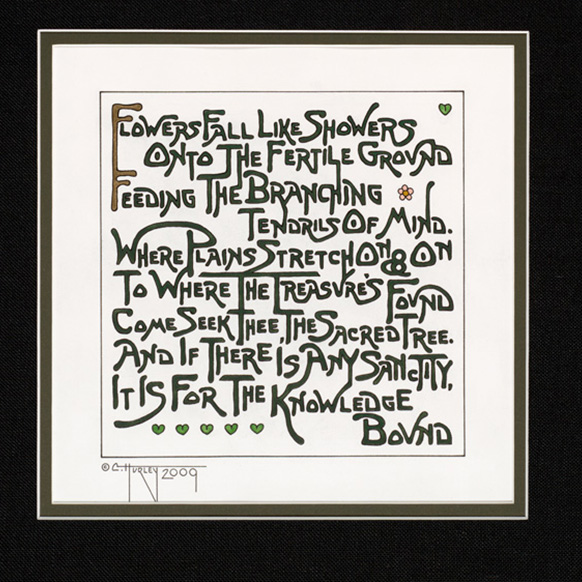 Flowers Fall Like Showers
Onto The Fertile Ground
Feeding The Branching
Tendrils Of Mind.
Where Plains Stretch On & On
To Where The Treasure's Found
Come Seek Thee, The Sacred Tree.
And If There Is Any Sanctity,
It Is For The Knowledge
Bound
© C. Hurley 2009